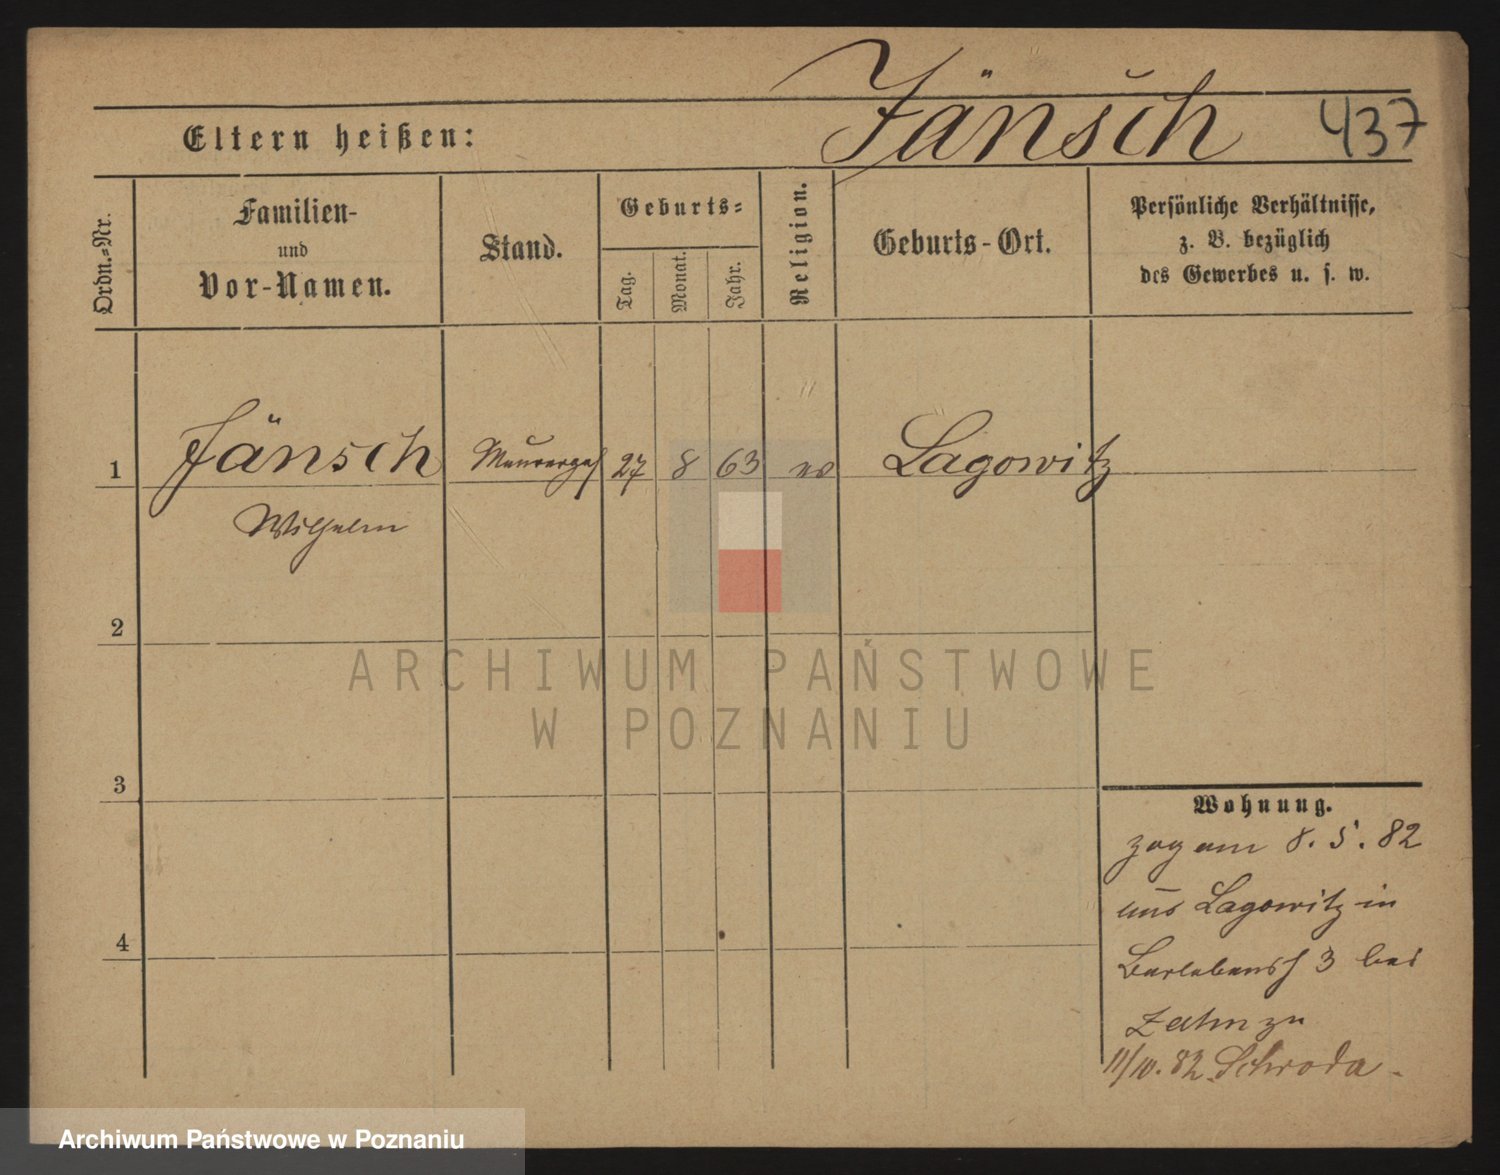 Jänsch 437
Eltern heißen:
Ordn.=Nr.
Familien-
und
Vor-Namen.
Stand.
Geburts=
Tag.
Monat.
Jahr.
Religion.
Geburts-Ort.
Persönliche Verhältnisse,
z. B. bezüglich
des Gewerbes u. s. w.
1 Jänsch Maurerges 27 8 63 ev Lagowitz
Wilhelm
2
3
4
ARCHIWUM PAŃSTWOWE
W POZNANIU
Wohnung.
zog am 8. 5. 82
aus Lagowitz in
3 bei
Zahn zu
11/10. 82. Schroda.
Archiwum Państwowe w Poznaniu